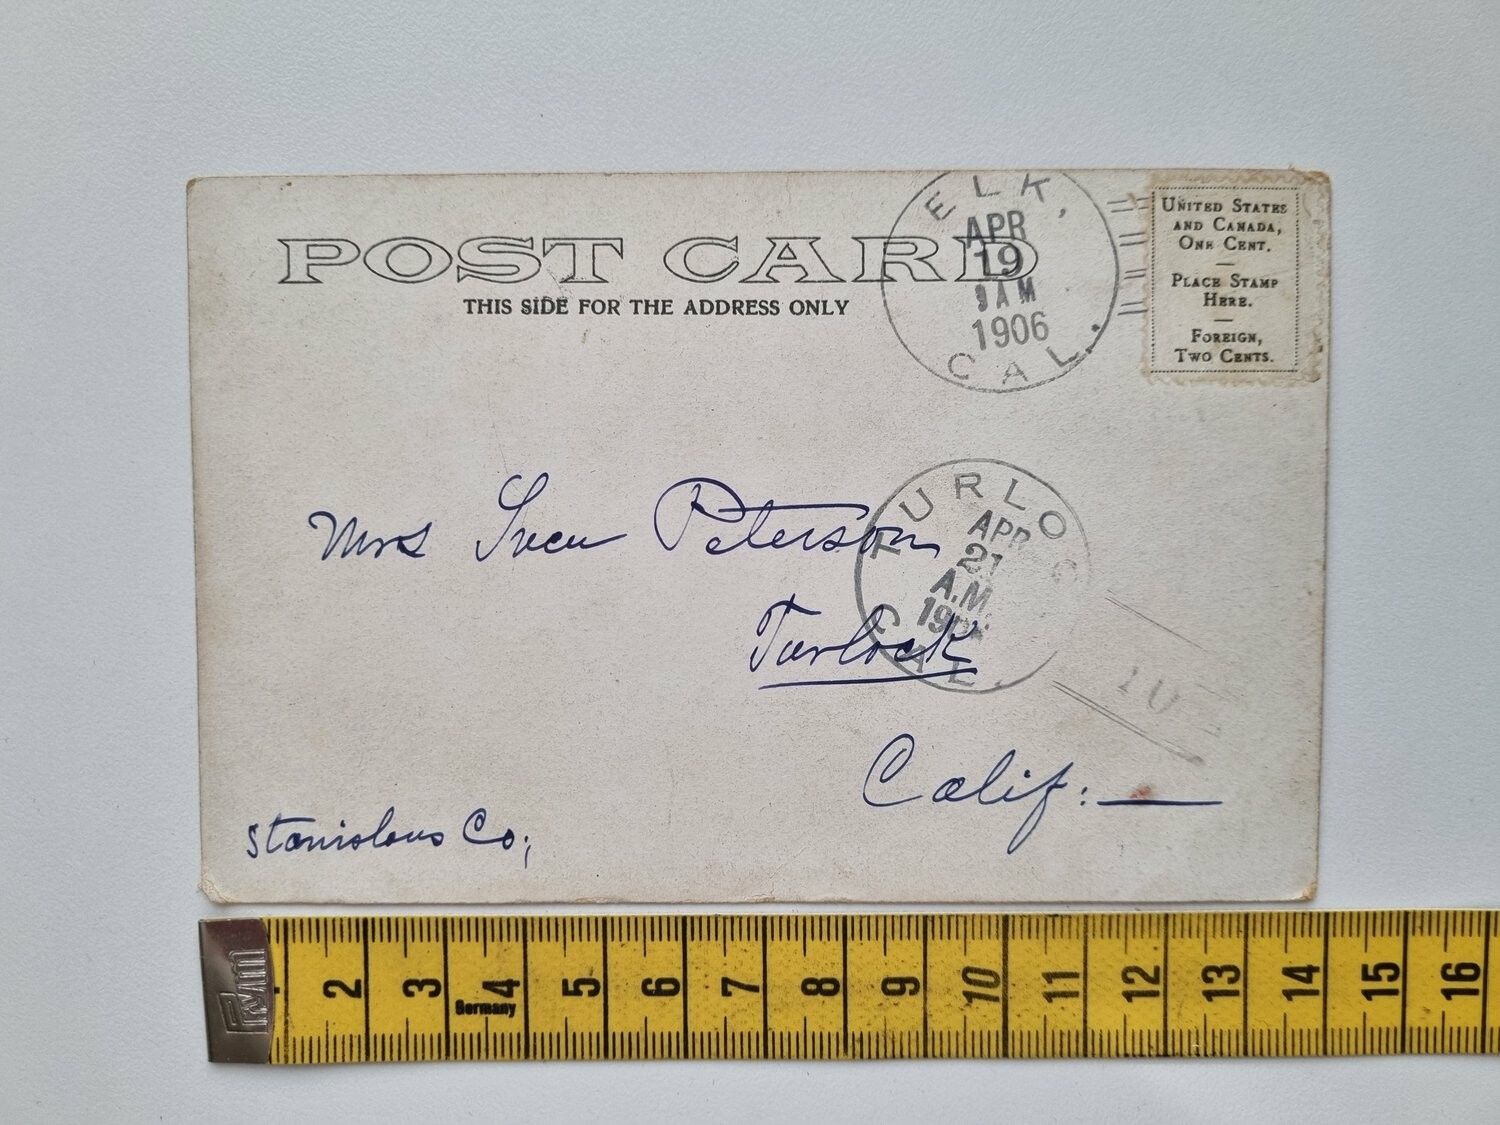 POST CARD
THIS SIDE FOR THE ADDRESS ONLY
ELK,
APR
19
9 AM
1906
CAL.
UNITED STATES
AND CANADA,
ONE CENT.
PLACE STAMP
HERE.
FOREIGN,
TWO CENTS.
TURLOC
APR
21
A.M.
CAL.
Mrs Sven Peterson
Turlock
Calif:
Stanislaus Co;
PRYM
2 3 4 5 6 7 8 9 10 11 12 13 14 15 16
Germany